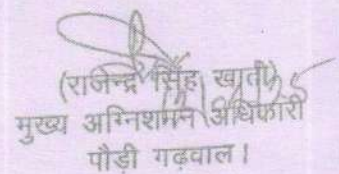 (राजेन्द्र सिंह खाती)
मुख्य अग्निशमन अधिकारी
पौड़ी गढ़वाल।